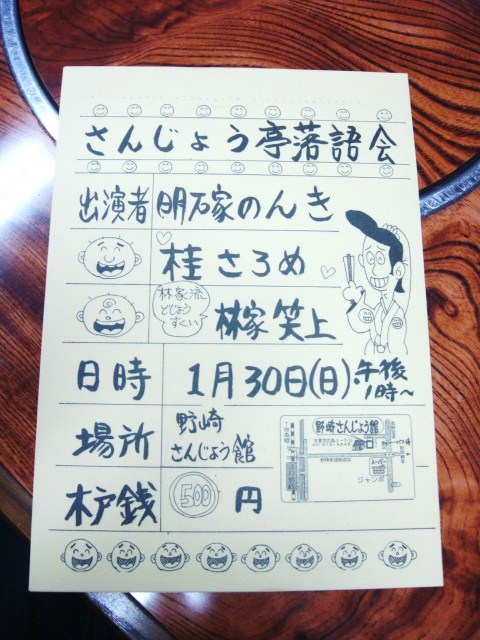 さんじょう亭落語会
出演者 明石家のんき
桂さろめ
林家流
どじょう
すくい
林家笑上
日時 1月30日(日)午後
1時〜
場所 野崎
さんじょう館
野崎さんじょう館
スーパー
ジャンボ
木戸銭 500 円